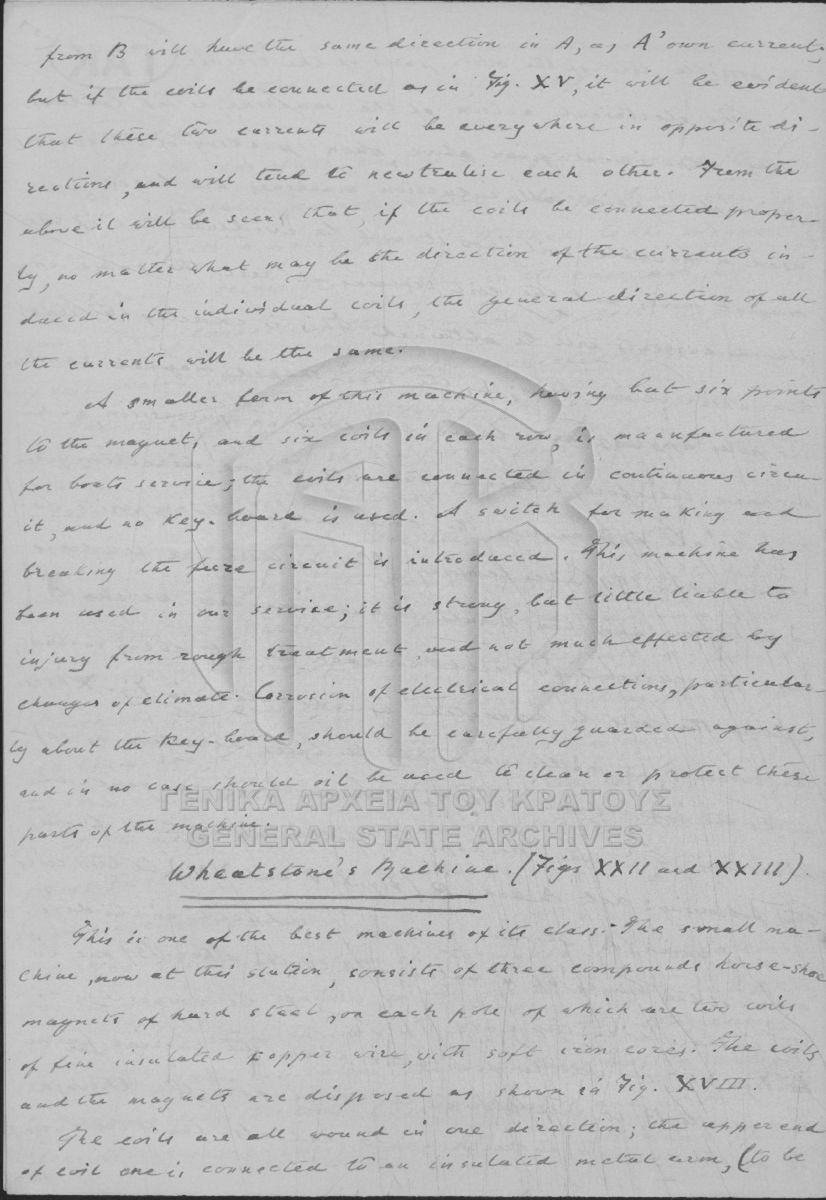 from B will have the same direction in A, as A' own current;
but if the coils be connected as in Fig. XV, it will be evident
that these two currents will be everywhere in opposite di-
rections, and will tend to newtralise each other. From the
above it will be seen that, if the coils be connected proper-
ly, no matter what may be the direction of the currents in-
duced in the individual coils, the general direction of all
the currents will be the same.
A smaller form of this machine, having but six points
to the magnet, and six coils in each row, is manufactured
for boats service; the coils are connected in continuous circu-
it, and no Key-board is used. A switch for making and
breaking the fuze circuit is introduced. This machine has
been used in our service; it is strong, but little liable to
injury from rough treatment and not much effected by
changes of climate. Corrosion of electrical connections, particular-
ly about the Key-board, should be carefully guarded against,
and in no case should oil be used to clean or protect these
parts of the machine.
ΓΕΝΙΚΑ ΑΡΧΕΙΑ ΤΟΥ ΚΡΑΤΟΥΣ
GENERAL STATE ARCHIVES
Wheatstone's Machine. (Figs XXII and XXIII).
This is one of the best machines of its class. The small ma-
chine, now at this station, consists of three compounds horse-shoe
magnets of hard steel, on each pole of which are two coils
of fine insulated copper wire, with soft iron cores. The coils
and the magnets are disposed as shown in Fig. XVIII.
The coils are all wound in one direction; the upper end
of coil one is connected to an insulated metal arm, (to be